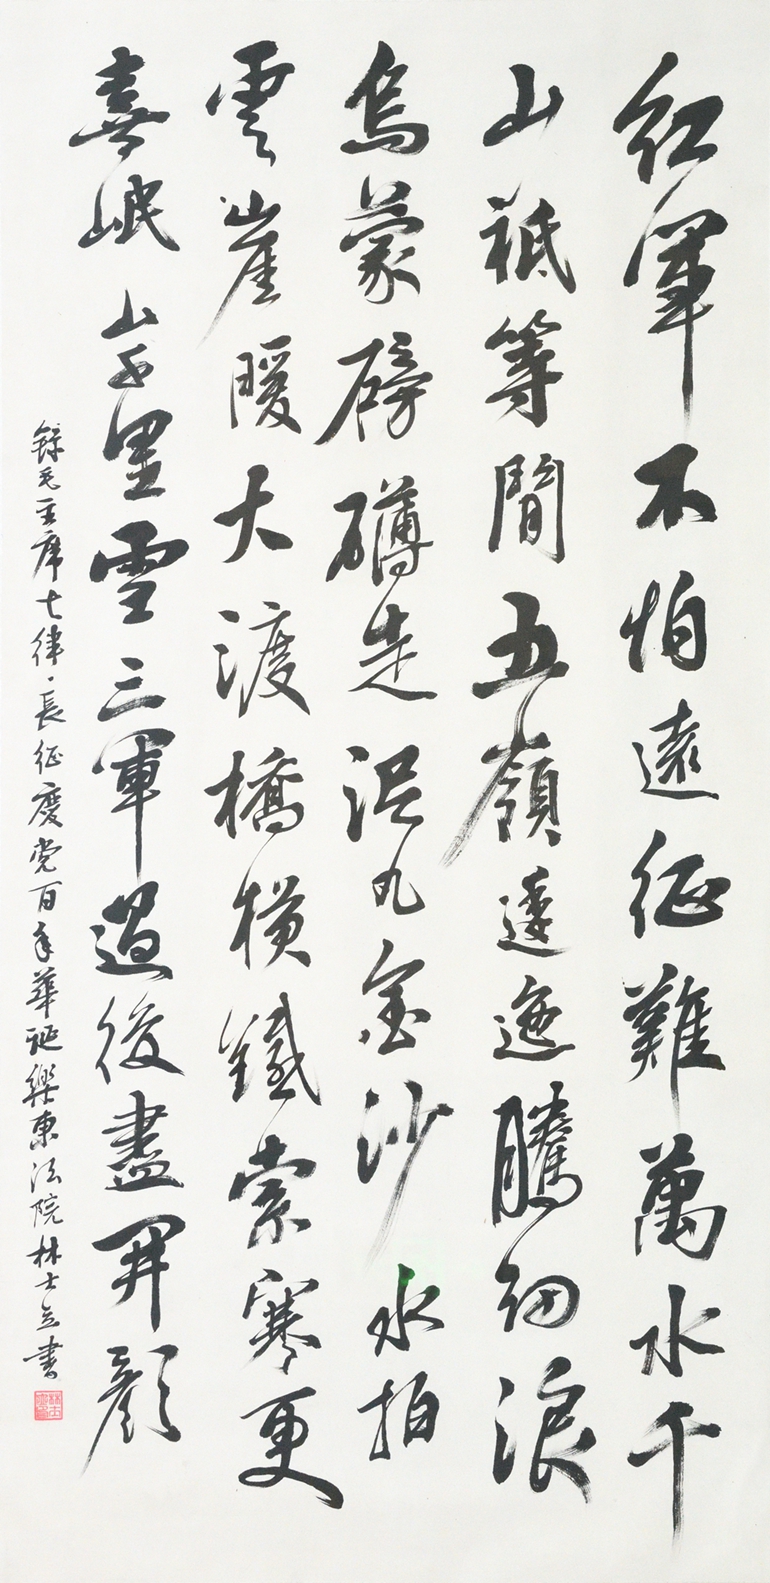 紅軍不怕遠征難萬水千
山祗等閒五嶺逶迤騰細浪
烏蒙磅礴走泥丸金沙水拍
雲崖暖大渡橋橫鐵索寒更
喜岷山千里雪三軍過後盡開顏
錄毛主席七律·長征慶党百年華誕樂東法院林士立書